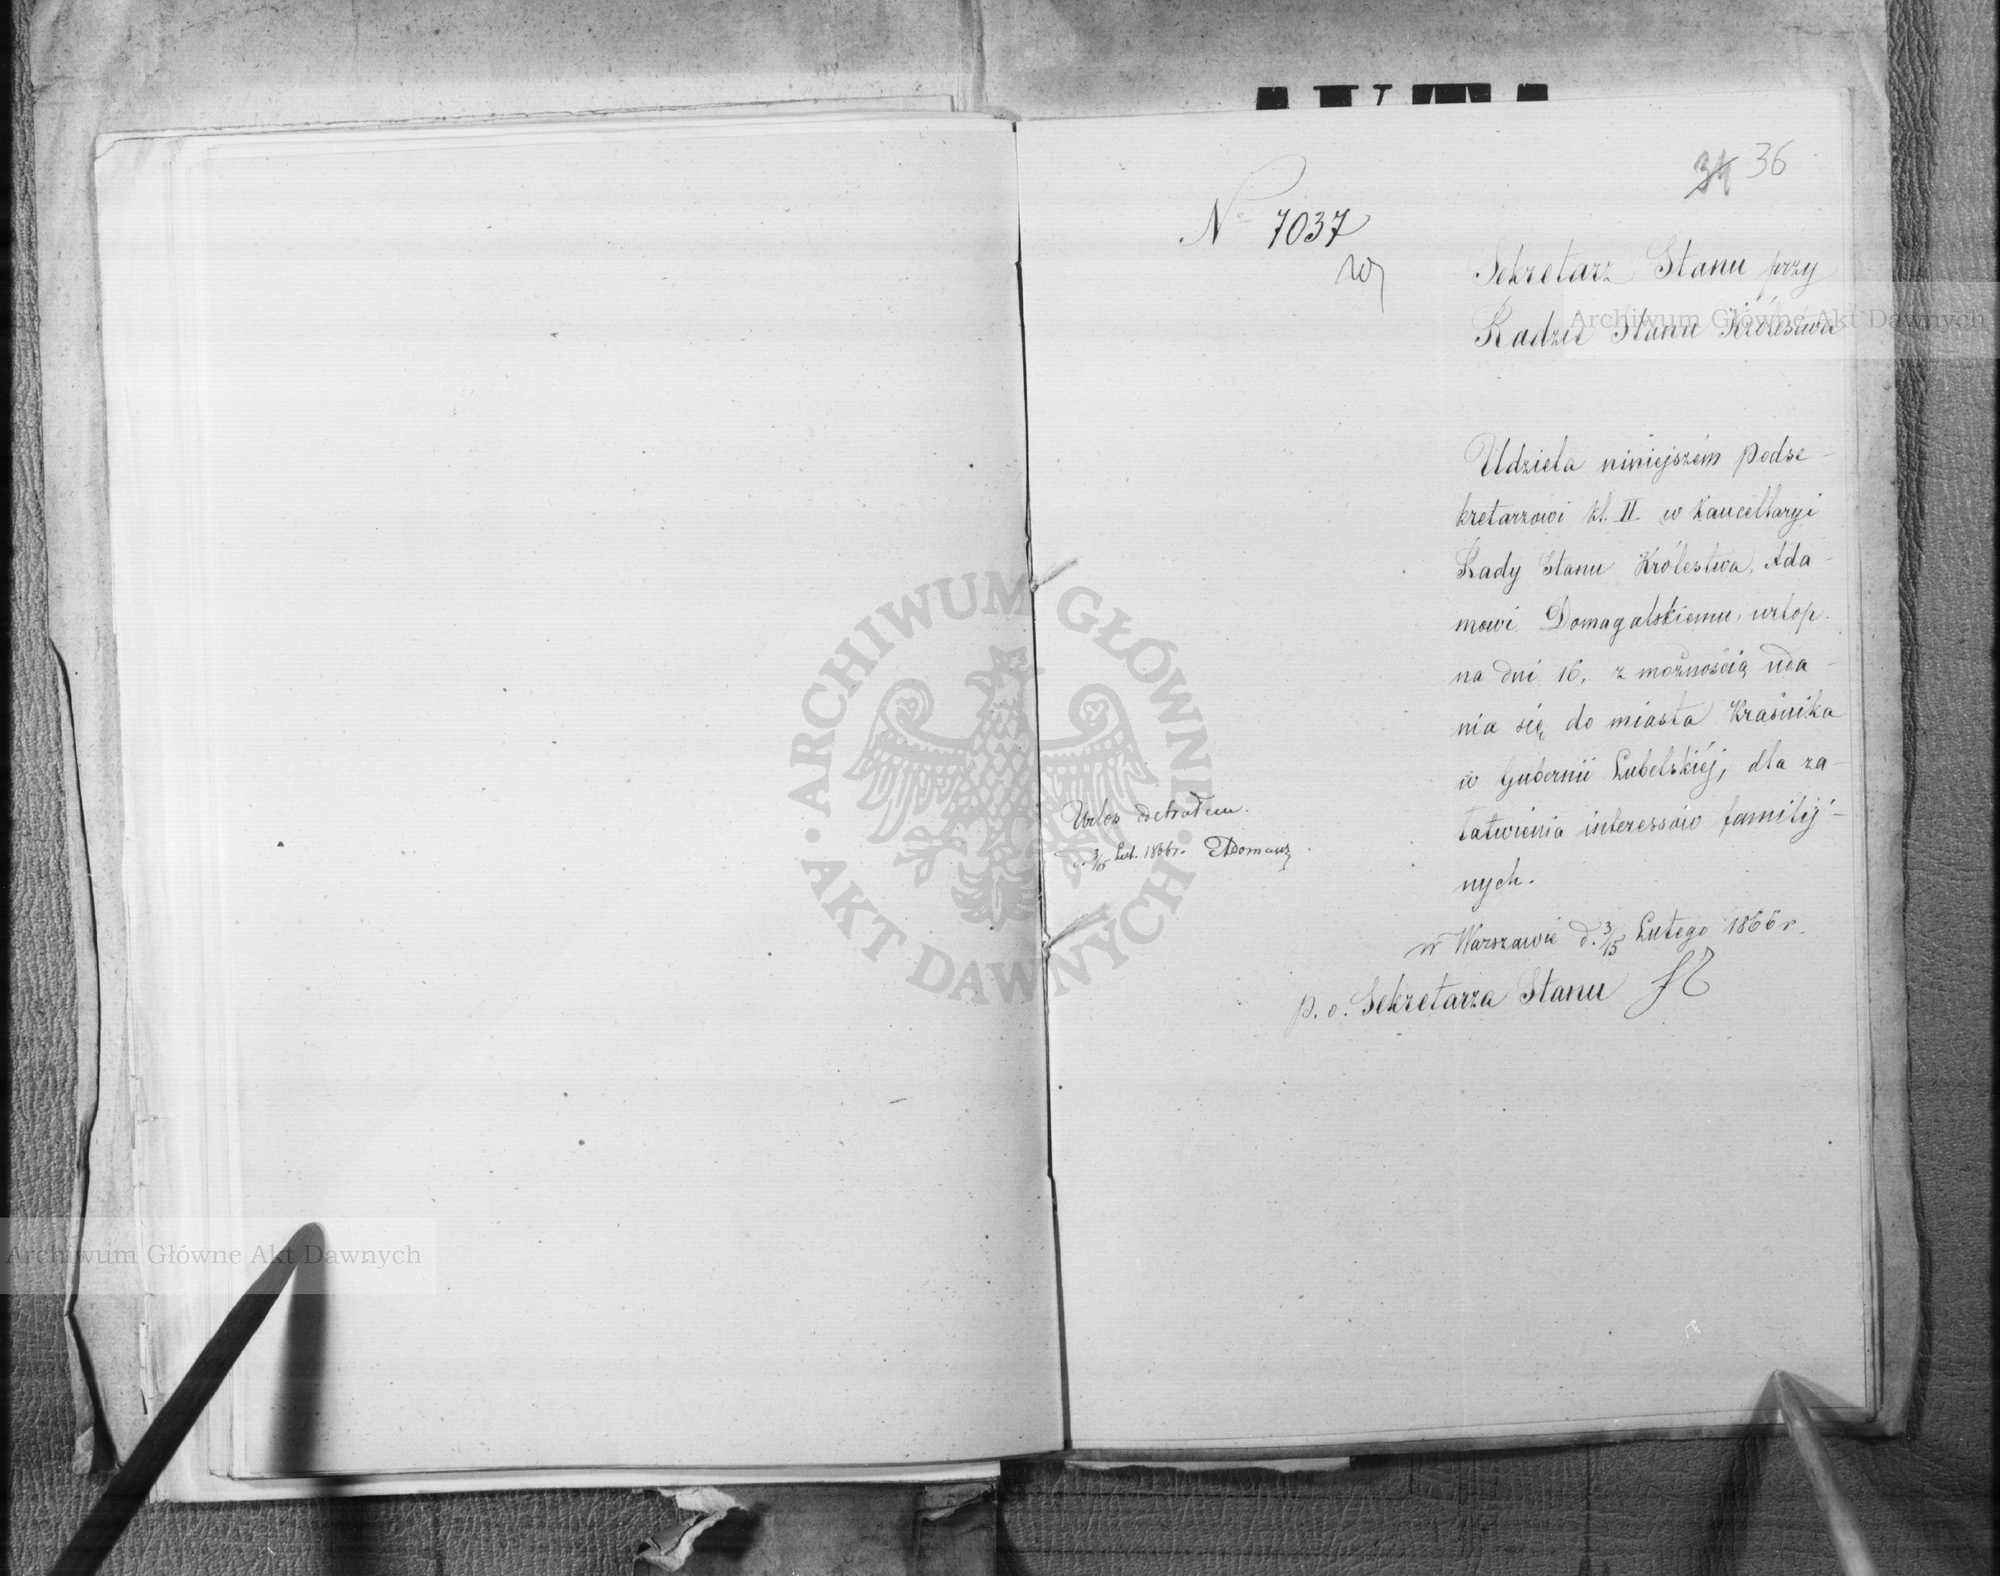 34 36
No 7037
Sekretarz Stanu przy
Radzie Stanu Królestwa
Udziela niniejszém Podse-
kretarzowi kl. II w Kancellaryi
Rady Stanu Królestwa, Ada-
mowi Domagalskiemu, urlop
na dni 16, z możnością uda-
nia się do miasta Kraśnika
w Gubernii Lubelskiéj, dla za-
łatwienia interessów familij-
nych.
w Warszawie d. 3/15 Lutego 1866 r.
p. o. Sekretarza Stanu
Urlop odebrałem.
d. 3/15 Lut. 1866 r.
Archiwum Główne Akt Dawnych
ARCHIWUM GŁÓWNE · AKT DAWNYCH ·
Archiwum Główne Akt Dawnych